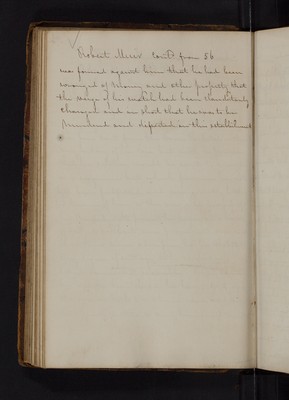 Robert Muir Cont'd from 56
was formed against him that he had been
wronged of money and other property that
the case of his watch had been clandestinely
changed and in short that he was to be
and defrauded in this establishment